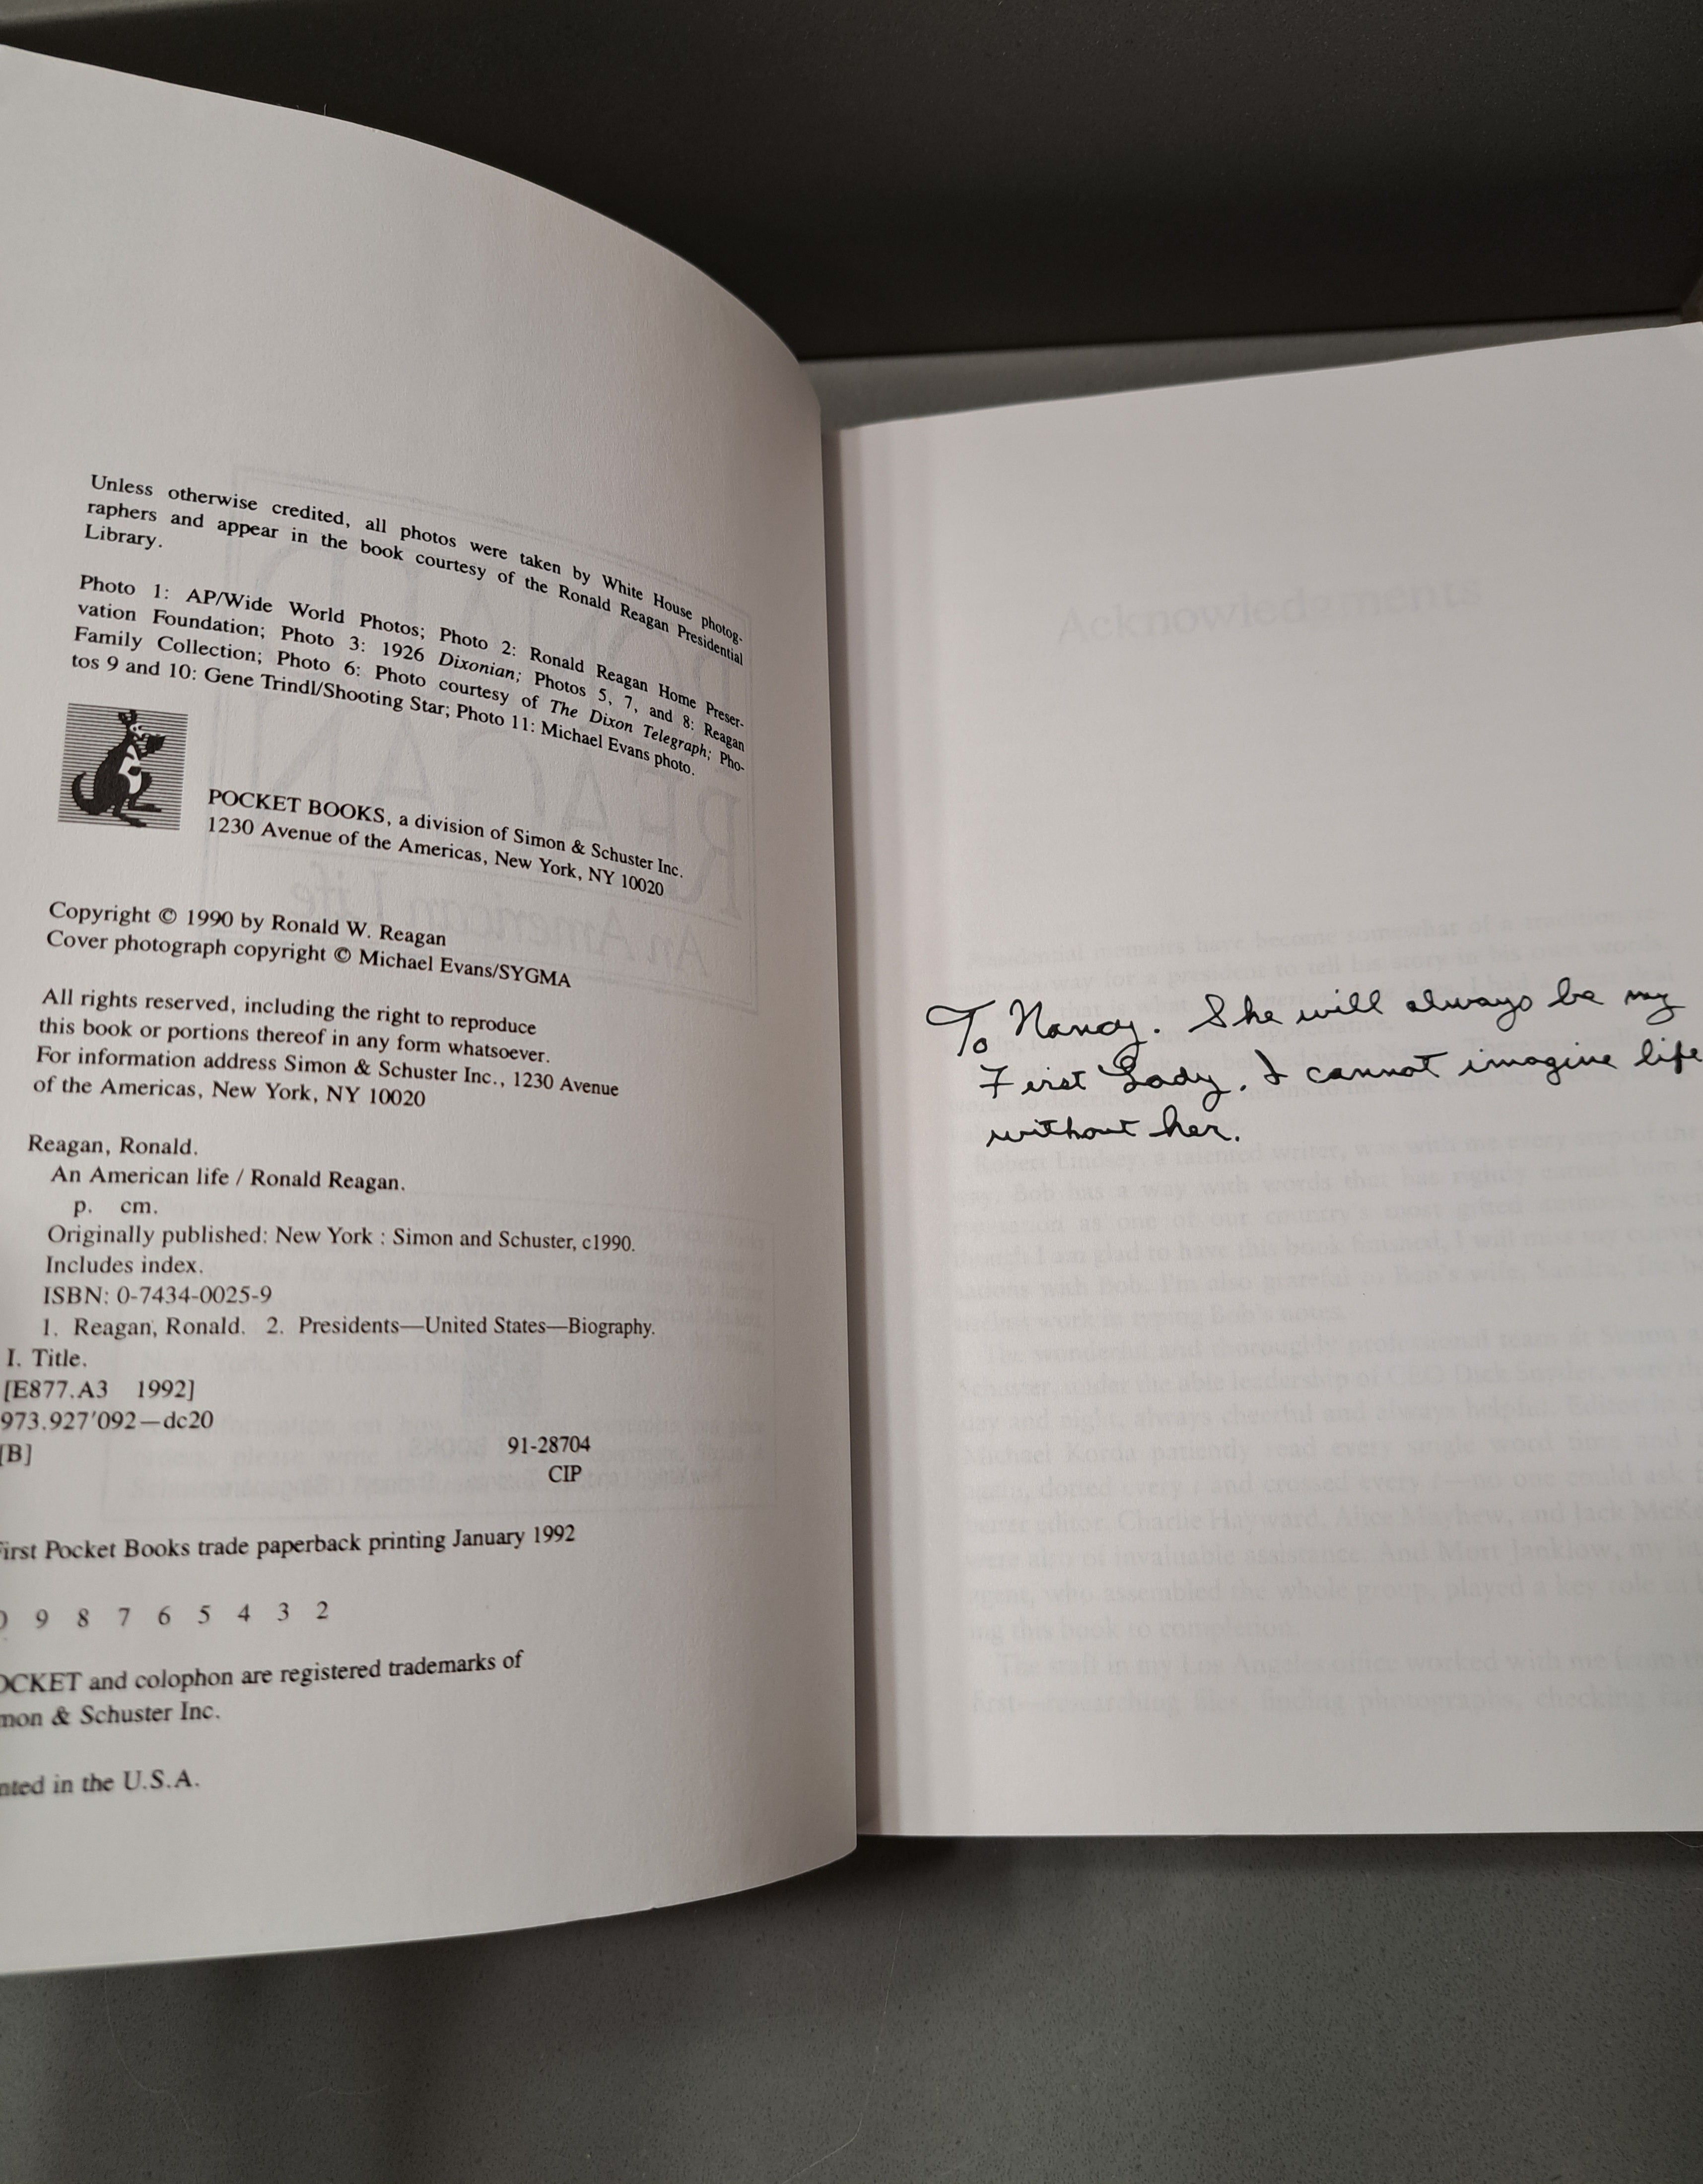 Unless otherwise credited, all photos were taken by White House photog-
raphers and appear in the book courtesy of the Ronald Reagan Presidential
Library.
Photo 1: AP/Wide World Photos; Photo 2: Ronald Reagan Home Preser-
vation Foundation; Photo 3: 1926 Dixonian; Photos 5, 7, and 8: Reagan
Family Collection; Photo 6: Photo courtesy of The Dixon Telegraph; Pho-
tos 9 and 10: Gene Trindl/Shooting Star; Photo 11: Michael Evans photo.
POCKET BOOKS, a division of Simon & Schuster Inc.
1230 Avenue of the Americas, New York, NY 10020
Copyright © 1990 by Ronald W. Reagan
Cover photograph copyright © Michael Evans/SYGMA
All rights reserved, including the right to reproduce
this book or portions thereof in any form whatsoever.
For information address Simon & Schuster Inc., 1230 Avenue
of the Americas, New York, NY 10020
Reagan, Ronald.
An American life / Ronald Reagan.
p. cm.
Originally published: New York : Simon and Schuster, c1990.
Includes index.
ISBN: 0-7434-0025-9
1. Reagan, Ronald. 2. Presidents—United States—Biography.
I. Title.
[E877.A3 1992]
973.927'092—dc20
[B] 91-28704
CIP
First Pocket Books trade paperback printing January 1992
9 8 7 6 5 4 3 2
OCKET and colophon are registered trademarks of
mon & Schuster Inc.
nted in the U.S.A.
To Nancy. She will always be my
First Lady. I cannot imagine life
without her.